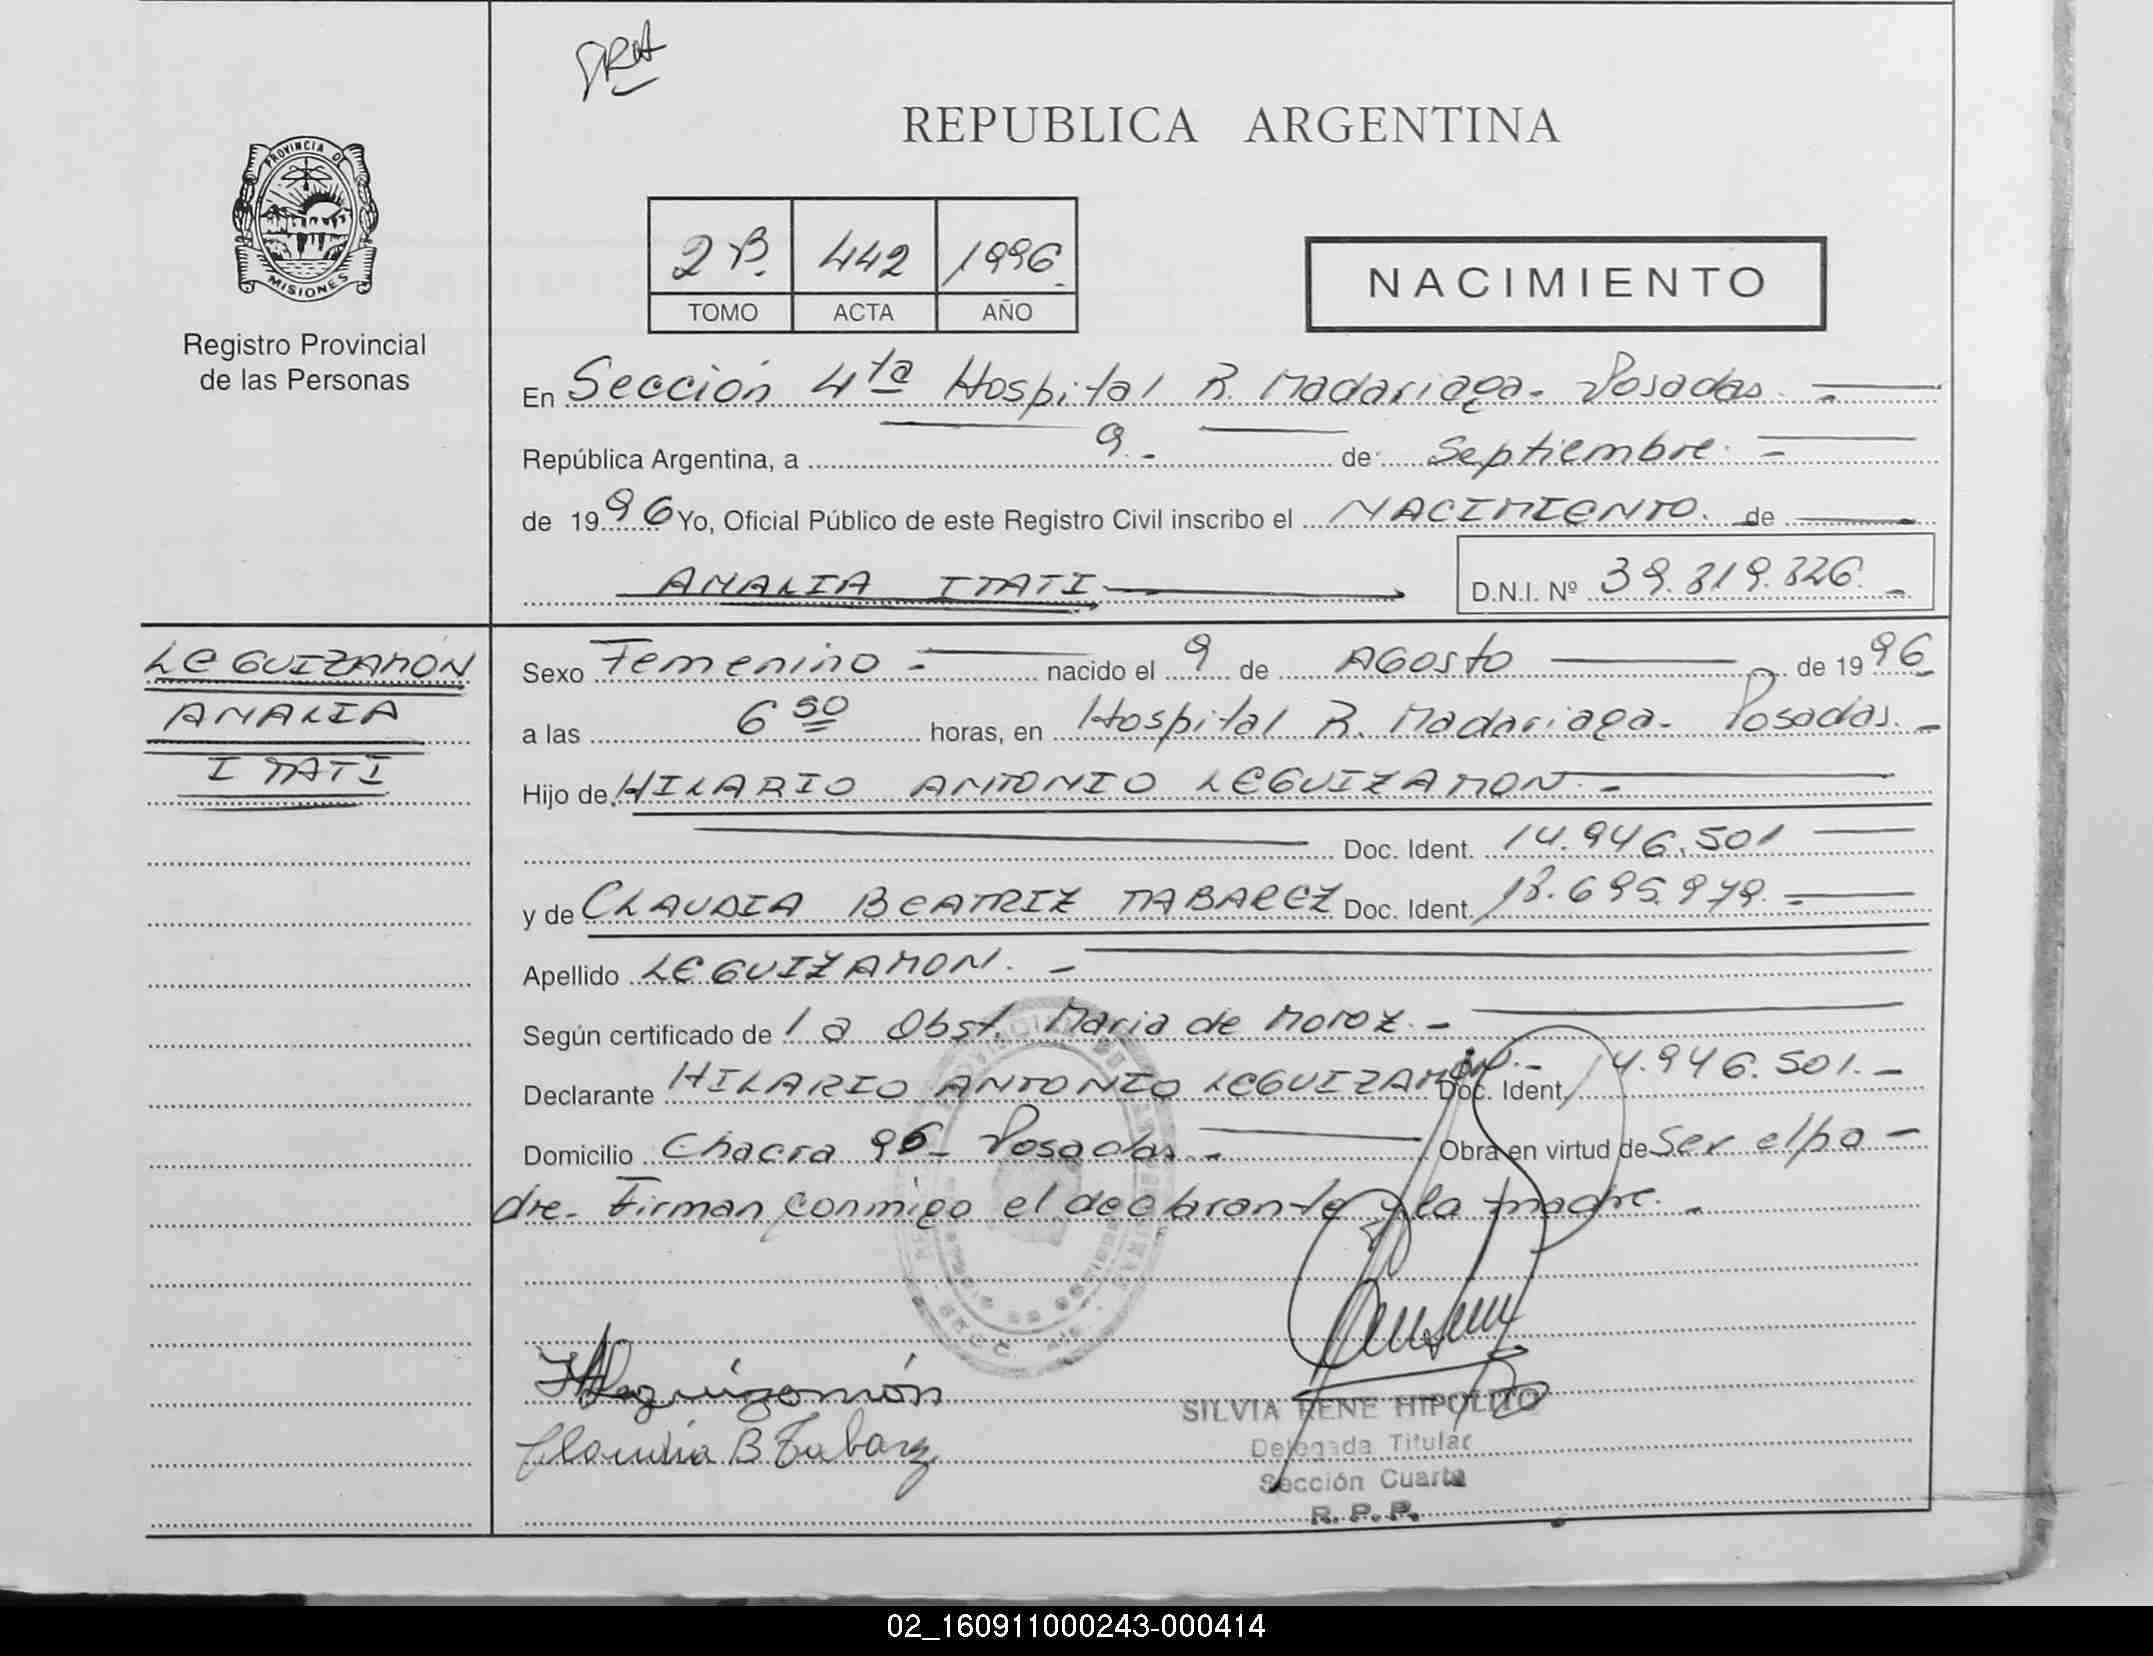 GRA
REPUBLICA ARGENTINA
PROVINCIA DE
MISIONES
Registro Provincial
de las Personas
2 B. 442 1996
TOMO ACTA AÑO
NACIMIENTO
En Sección 4ta Hospital R. Madariaga. Posadas.
República Argentina, a 9.- de Septiembre.
de 1996 Yo, Oficial Público de este Registro Civil inscribo el NACIMIENTO. de
AMALIA ITATI
D.N.I. Nº 39.819.326.
LEGUIZAMON
AMALIA
ITATI
Sexo Femenino.- nacido el 9 de AGosto de 1996
a las 6 30 horas, en Hospital R. Madariaga. Posadas.-
Hijo de HILARIO ANTONIO LEGUIZAMON.-
Doc. Ident. 14.946.501
y de CLAUDIA BEATRIZ TABAREZ Doc. Ident. 18.695.979.
Apellido LEGUIZAMON.-
Según certificado de la Obst. Maria de Moroz.-
Declarante HILARIO ANTONIO LEGUIZAMON.- Doc. Ident. 14.946.501.-
Domicilio Chacra 96- Posadas.- Obra en virtud de Ser el pa-
dre. Firman conmigo el declarante y la madre.-
HALeguizamón
Claudia B Tabarez
SILVIA RENE HIPOLITO
Delegada Titular
Sección Cuarta
R. P. P.
02_160911000243-000414